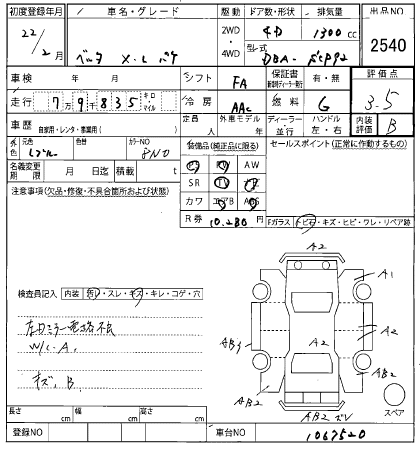 初度登録年月 車名・グレード 駆動 ドア数・形状 排気量 出品NO
22/2月 2WD・4WD 4D 1300cc 2540
型式 DBA-
車検 年 月 シフト FA 保証書 有・無 評価点
走行 7万9千835 キロ・マイル 冷房 AAC 燃料 G 3.5
車歴 自家用・レンタ・事業用( ) 定員 人 外車モデル 年 ディーラー・並行 ハンドル 左・右 内装評価 B
外色 元色 色替 カラーNO 8N0 装備品(純正品に限る) セールスポイント(正常に作動するもの)
名義変更期限 月 日迄 積載 t AW
SR
注意事項(欠品・修復・不具合箇所および状態) カワ
R券 10.280円 Fガラス トビ石・キズ・ヒビ・ワレ・リペア跡
A2
検査員記入 内装 スレ・キズ・キレ・コゲ・穴 A1
右ミラー電格不良
W/C.A. A2 A2
キズ.B AB2
AB2 AB2
スペア
長さ cm 幅 cm 高さ cm
登録NO 車台NO 1067520